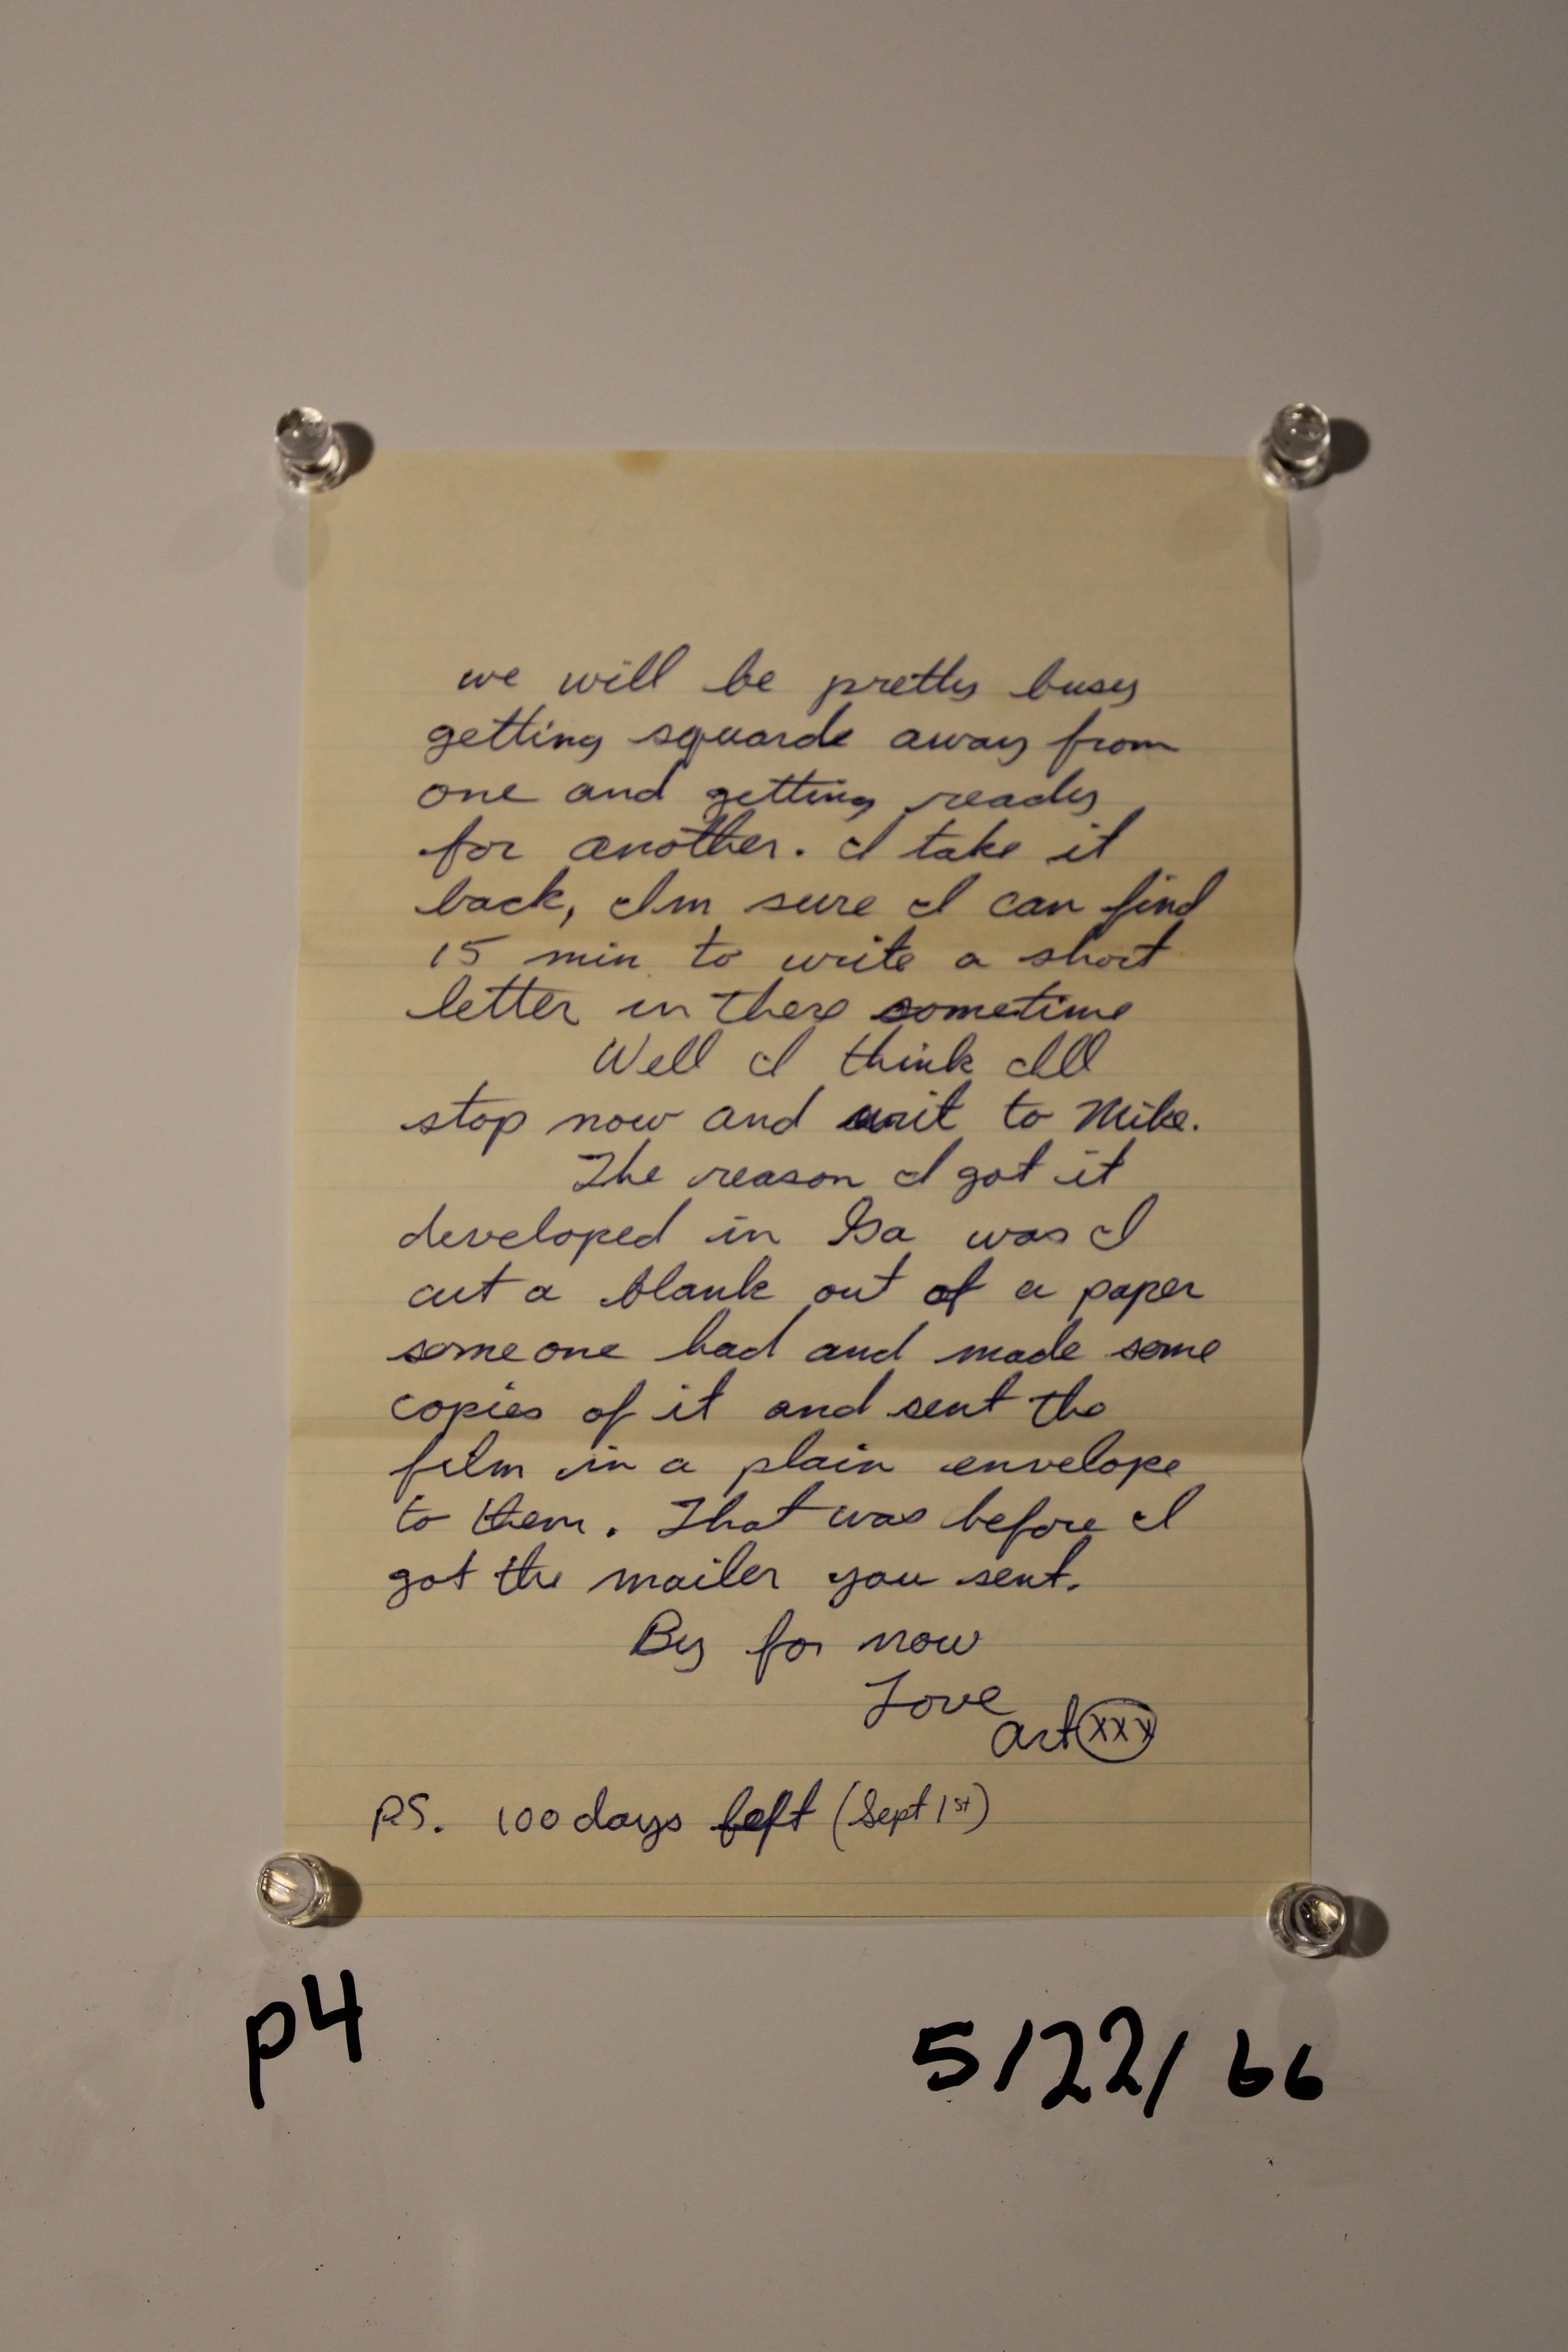 we will be pretty busy
getting squarde away from
one and getting ready
for another. I take it
back, Im sure I can find
15 min to write a short
letter in there sometime
Well I think Ill
stop now and writ to Mike.
The reason I got it
developed in Ga was I
cut a blank out of a paper
someone had and made some
copies of it and sent the
film in a plain envelope
to them. That was before I
got the mailer you sent.
By for now
Love
Art XXX
PS. 100 days left (Sept 1st)
p4
5/22/66